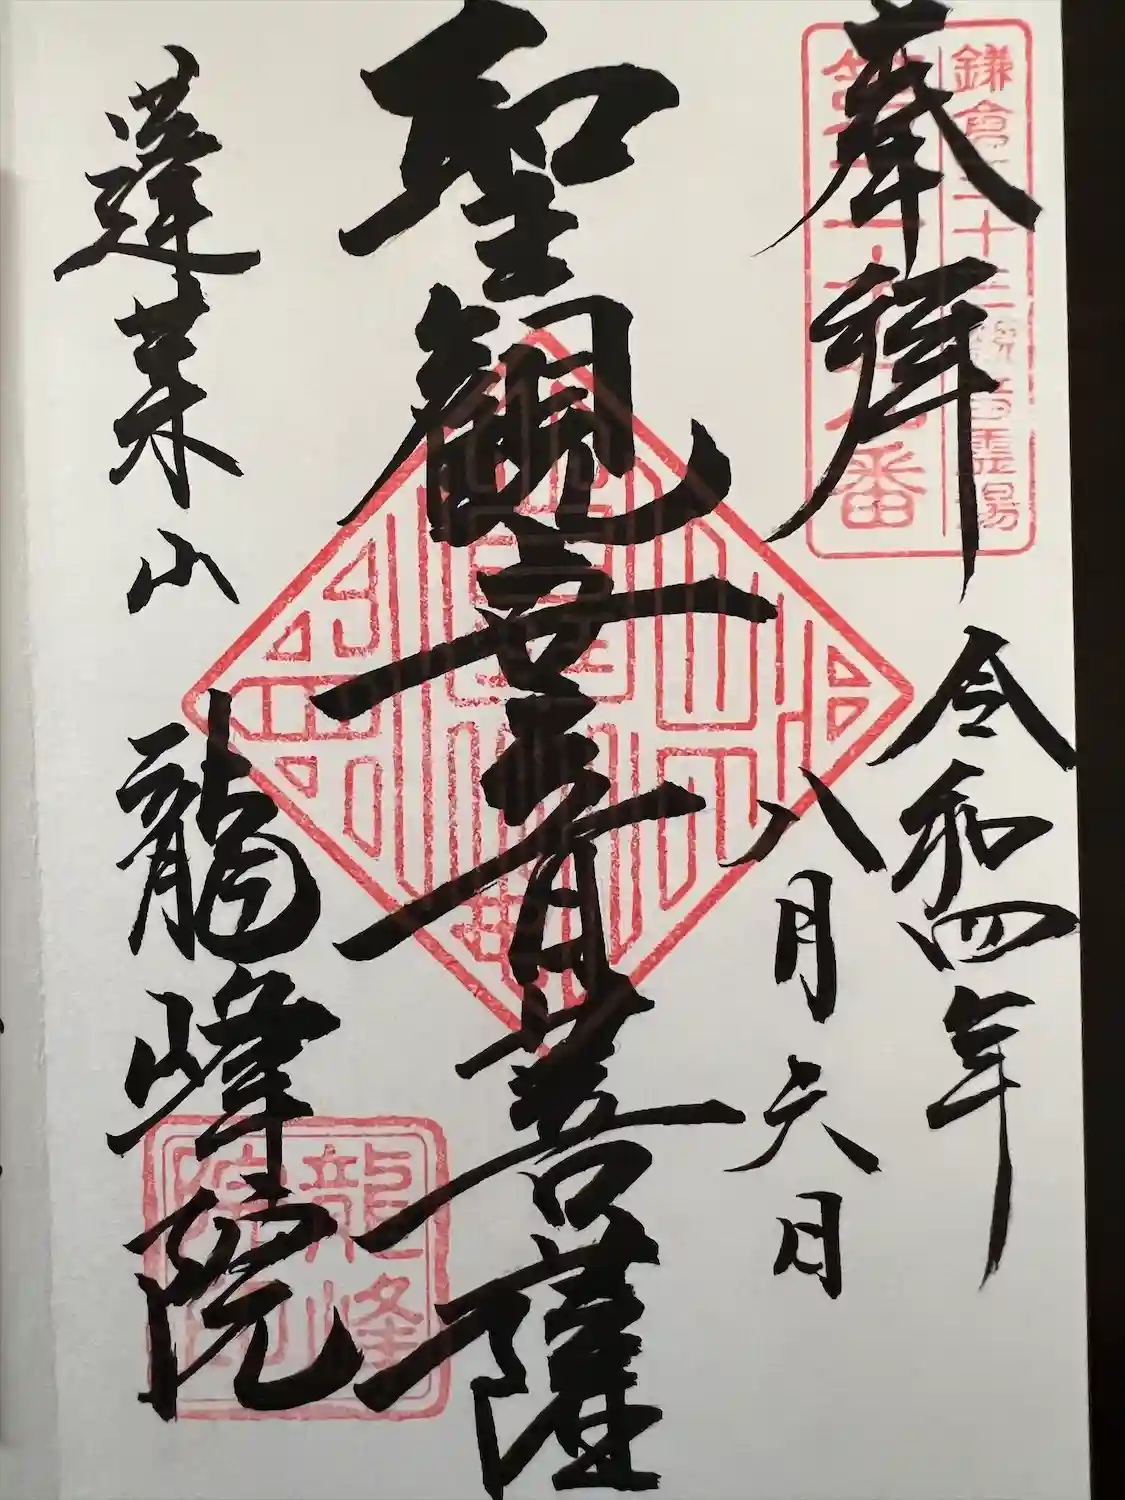 奉拝
鎌倉三十三観音霊場
第二十九番
令和四年
八月六日
聖観世音菩薩
蓬莱山
龍峰院
龍峰
院印